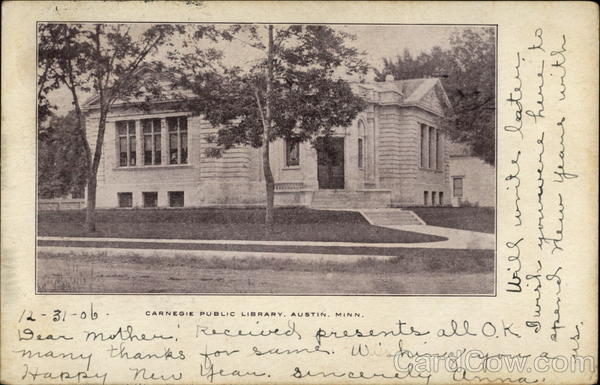 CARNEGIE PUBLIC LIBRARY, AUSTIN, MINN.
12-31-06.
Dear Mother; Received presents all O.K
many thanks for same. Wishing you a
Happy New Year. Sincerely Anna.
Will write later,
I wish you were here to
spend New Years with
us.
CardCow.com